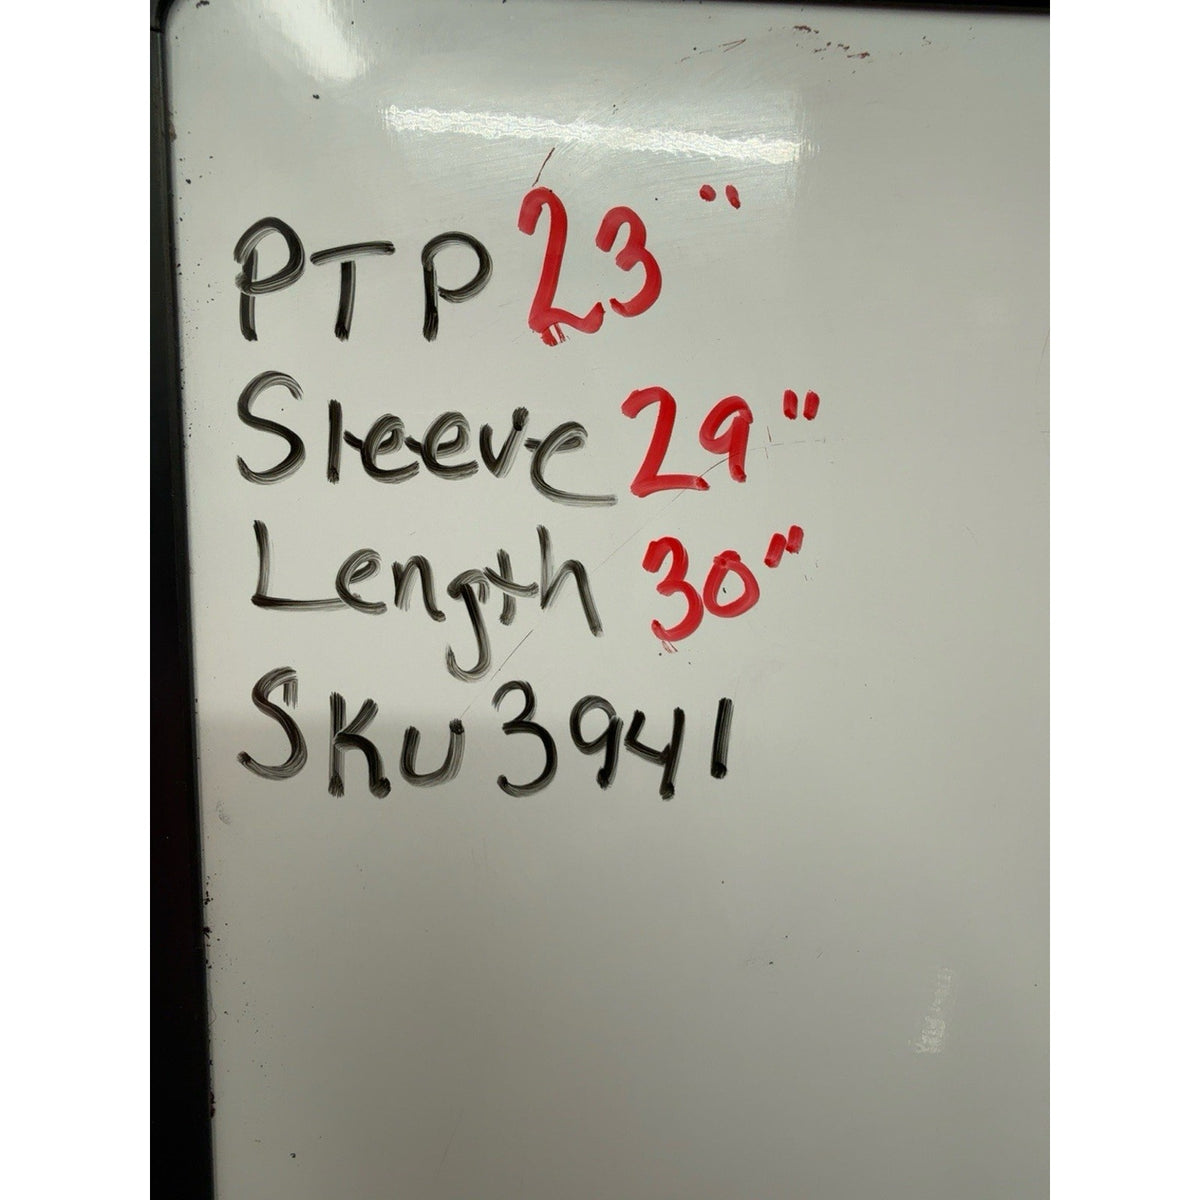 PTP 23"
Sleeve 29"
Length 30"
SKU 3941